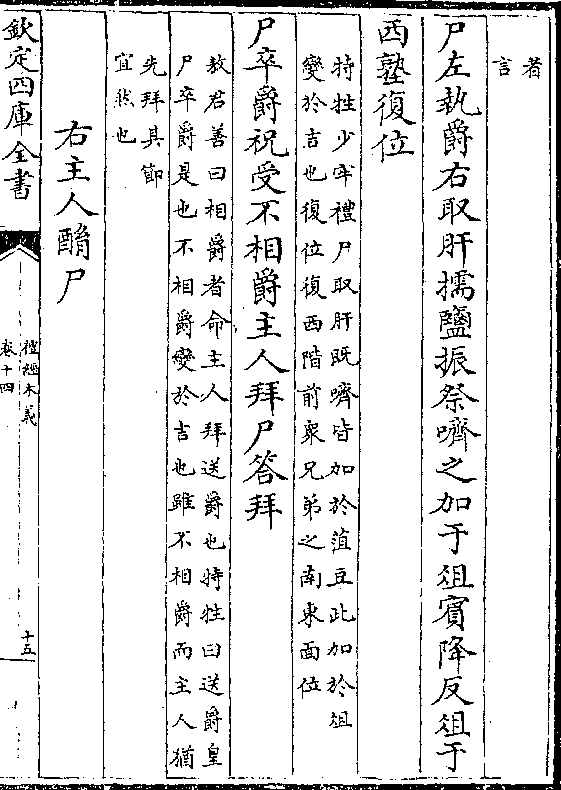 者
言
尸左執爵右取肝擩鹽振祭嚌之加于俎賓降反俎于
西塾復位
特牲少牢禮尸取肝既嚌皆加於菹豆此加於俎
變於吉也復位復西階前衆兄弟之南東面位
尸卒爵祝受不相爵主人拜尸答拜
敖君善曰相爵者命主人拜送爵也特牲曰送爵皇
尸卒爵是也不相爵變於吉也雖不相爵而主人猶
先拜其節
宜然也
右主人酳尸
欽定四庫全書
禮經本義
卷十四
十五